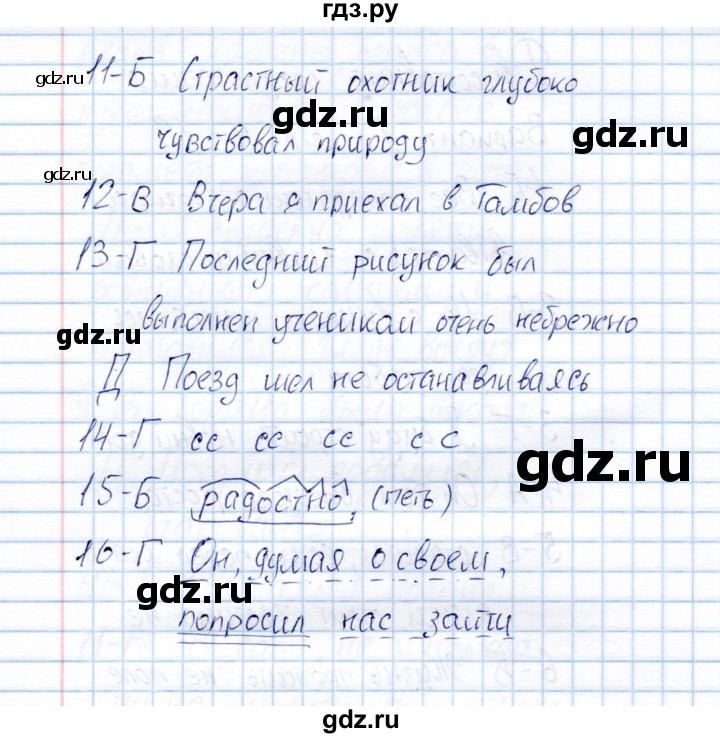 гдз.ру
11-Б Страстный охотник глубоко
gdz.ru
gdz.ru
чувствовал природу
gdz.ru
gdz.ru
12-В Вчера я приехал в Тамбов
13-Г Последний рисунок был
выполнен учеником очень небрежно
gdz.ru
Д Поезд шел не останавливаясь
14-Г сс сс сс с с
gdz.ru
15-Б радостно, (петь)
16-Г Он, думая о своем,
gdz.ru
попросил нас зайти
gdz.ru